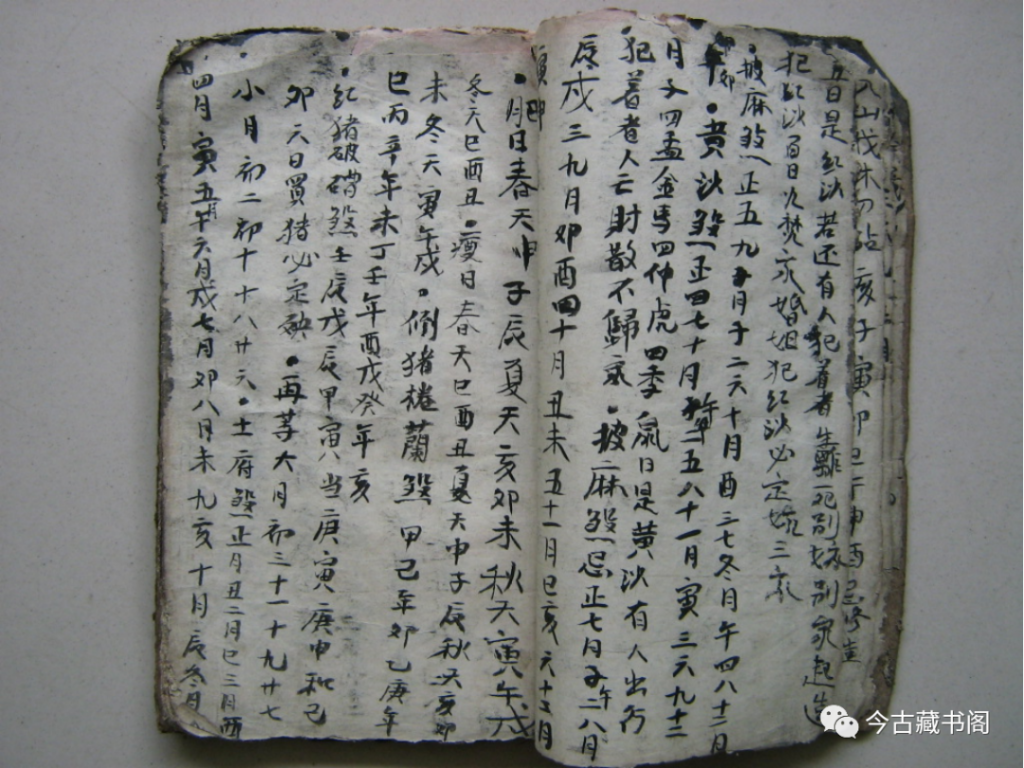 入山伐木 亥子寅卯巳午申酉忌修造
五日是红沙若还有人犯着者生離死别嫁别家起造
犯红沙百日火焚家婚姻犯红沙必定嫁三家
·披麻煞正五九月子二六十月酉三七冬月午四八十二月
卯·黄沙煞正四七十月 二五八十一月寅三六九十二
月子四孟金馬四仲虎四季鼠日是黄沙有人出行
犯着者人亡財散不歸家·披麻煞忌正七月子午二八月
辰戌三九月卯酉四十月丑未五十一月巳亥六十二月
寅卯
·肥日春天申子辰夏天亥卯未秋天寅午戌
冬天巳酉丑·瘦日春天巳酉丑夏天申子辰秋天亥卯
未冬天寅午戌·倒猪楼蘭煞甲己年卯乙庚年
巳丙辛年未丁壬年酉戊癸年亥
·红猪破碎煞壬辰戊辰甲寅八当庚寅庚申和己
卯六日買猪必定殃·再等大月初三十一十九廿七
小月初二初十十八廿六·土府煞正月丑二月巳三月酉
四月寅五月午六月戌七月卯八月未九亥十月辰冬月
今古藏书阁